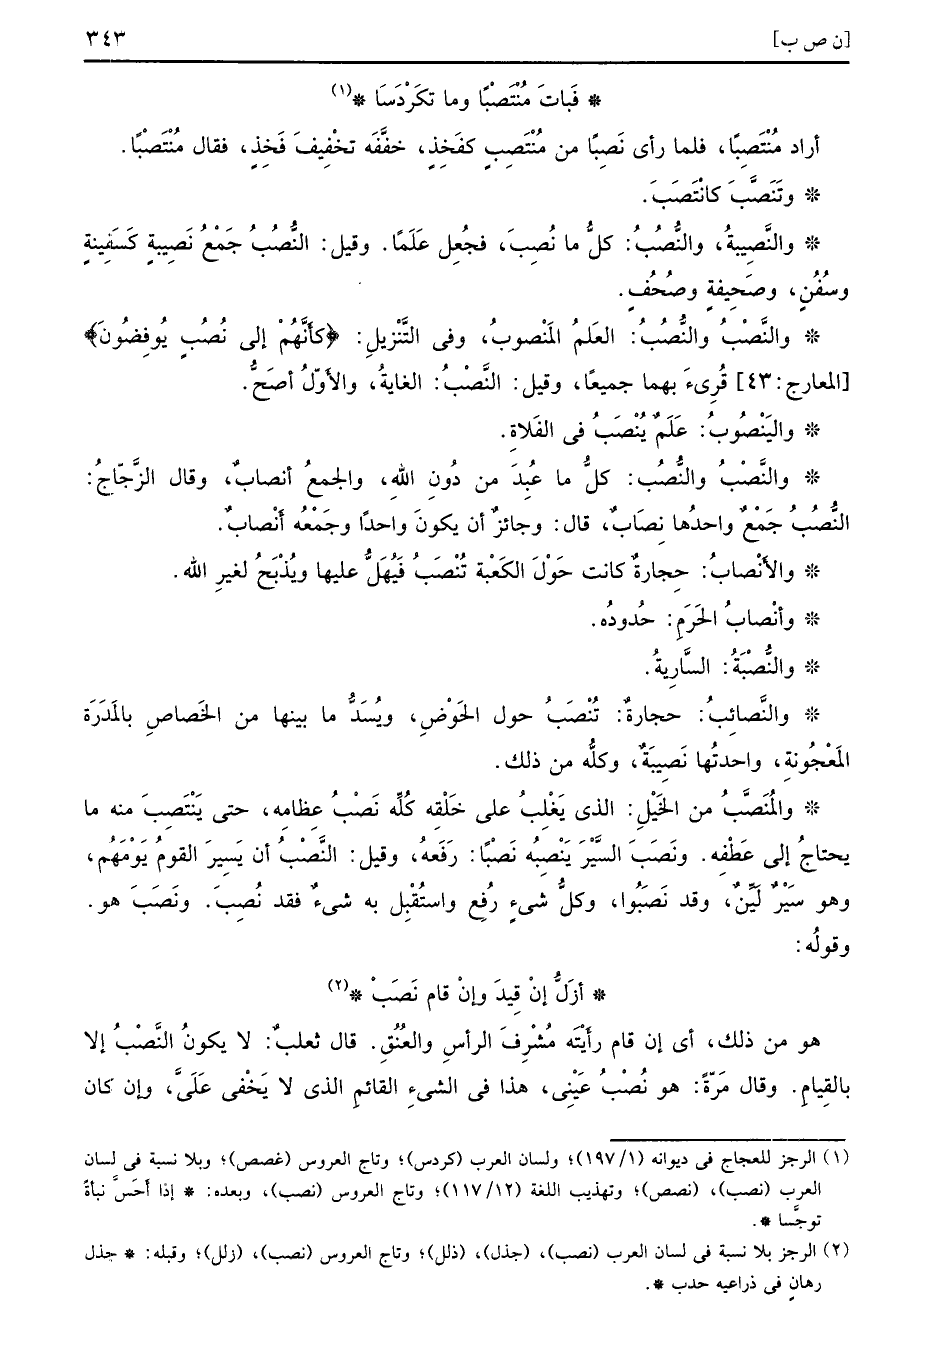 [ن ص ب] ٣٤٣
* فَباتَ مُنْتَصْبًا وما تكَرْدَسَا *(١)
أراد مُنْتَصِبًا، فلما رأى نَصِبًا من مُنْتَصِبٍ كفَخِذٍ، خفَّفَه تخْفِيفَ فَخِذٍ، فقال مُنْتَصْبًا.
* وتَنَصَّبَ كانْتَصَبَ.
* والنَّصِيبةُ، والنُّصُبُ: كلُّ ما نُصِبَ، فجُعِل عَلَمًا. وقيل: النُّصُبُ جَمْعُ نَصِيبةٍ كَسَفِينةٍ
وسُفُنٍ، وصَحِيفةٍ وصُحُفٍ.
* والنَّصْبُ والنُّصُبُ: العَلمُ المَنْصوبُ، وفى التَّنْزيلِ: ﴿كأنَّهُمْ إلى نُصُبٍ يُوفِضُونَ﴾
[المعارج: ٤٣] قُرِىءَ بهما جميعًا، وقيل: النَّصْبُ: الغايةُ، والأوّلُ أصَحُّ.
* واليَنْصُوبُ: عَلَمٌ يُنْصَبُ فى الفَلاةِ.
* والنَّصْبُ والنُّصُب: كلُّ ما عُبِدَ من دُونِ اللهِ، والجمعُ أنصابٌ، وقال الزَّجّاجُ:
النُّصُبُ جَمْعٌ واحدُها نِصَابٌ، قال: وجائزٌ أن يكونَ واحدًا وجَمْعُه أنْصابٌ.
* والأنْصابُ: حِجارةٌ كانت حَوْلَ الكَعْبة تُنْصَبُ فَيُهَلُّ عليها ويُذْبَحُ لغيرِ الله.
* وأنْصابُ الحَرَمِ: حُدُودُه.
* والنُّصْبَةُ: السَّارِيةُ.
* والنَّصائبُ: حجارةٌ: تُنْصَبُ حول الحَوْضِ، ويُسَدُّ ما بينها من الخَصاصِ بالمَدَرَة
المَعْجُونةِ، واحدتُها نَصِيبَةٌ، وكلُّه من ذلك.
* والمُنَصَّبُ من الخَيْلِ: الذى يَغْلِبُ على خَلْقِه كُلِّه نَصْبُ عِظامِه، حتى يَنْتَصِبَ منه ما
يحتاجُ إلى عَطْفِه. ونَصَبَ السَّيْرَ يَنْصِبُه نَصْبًا: رَفَعهُ، وقيل: النَّصْبُ أن يَسِيرَ القومُ يَوْمَهُم،
وهو سَيْرٌ لَيِّنٌ، وقد نَصَبُوا، وكلُّ شىءٍ رُفِع واستُقْبِل به شىءٌ فقد نُصِبَ. ونَصَبَ هو.
وقولُه:
* أزَلُّ إنْ قِيدَ وإنْ قام نَصَبْ *(٢)
هو من ذلك، أى إن قام رأَيْتَه مُشْرِفَ الرأسِ والعُنُقِ. قال ثعلبٌ: لا يكونُ النَّصْبُ إلا
بالقِيامِ. وقال مَرّةً: هو نُصْبُ عَيْنِى، هذا فى الشىءِ القائم الذى لا يَخْفى عَلَىَّ، وإن كان
(١) الرجز للعجاج فى ديوانه (١/ ١٩٧)؛ ولسان العرب (كردس)؛ وتاج العروس (غصص)؛ وبلا نسبة فى لسان
العرب (نصب)، (نصص)؛ وتهذيب اللغة (١٢/ ١١٧)؛ وتاج العروس (نصب)، وبعده: * إذا أحَسَّ نبأةً
توجَّسا *.
(٢) الرجز بلا نسبة فى لسان العرب (نصب)، (جذل)، (ذلل)؛ وتاج العروس (نصب)، (زلل)؛ وقبله: * جذل
رهانٍ فى ذراعيه حدب *.